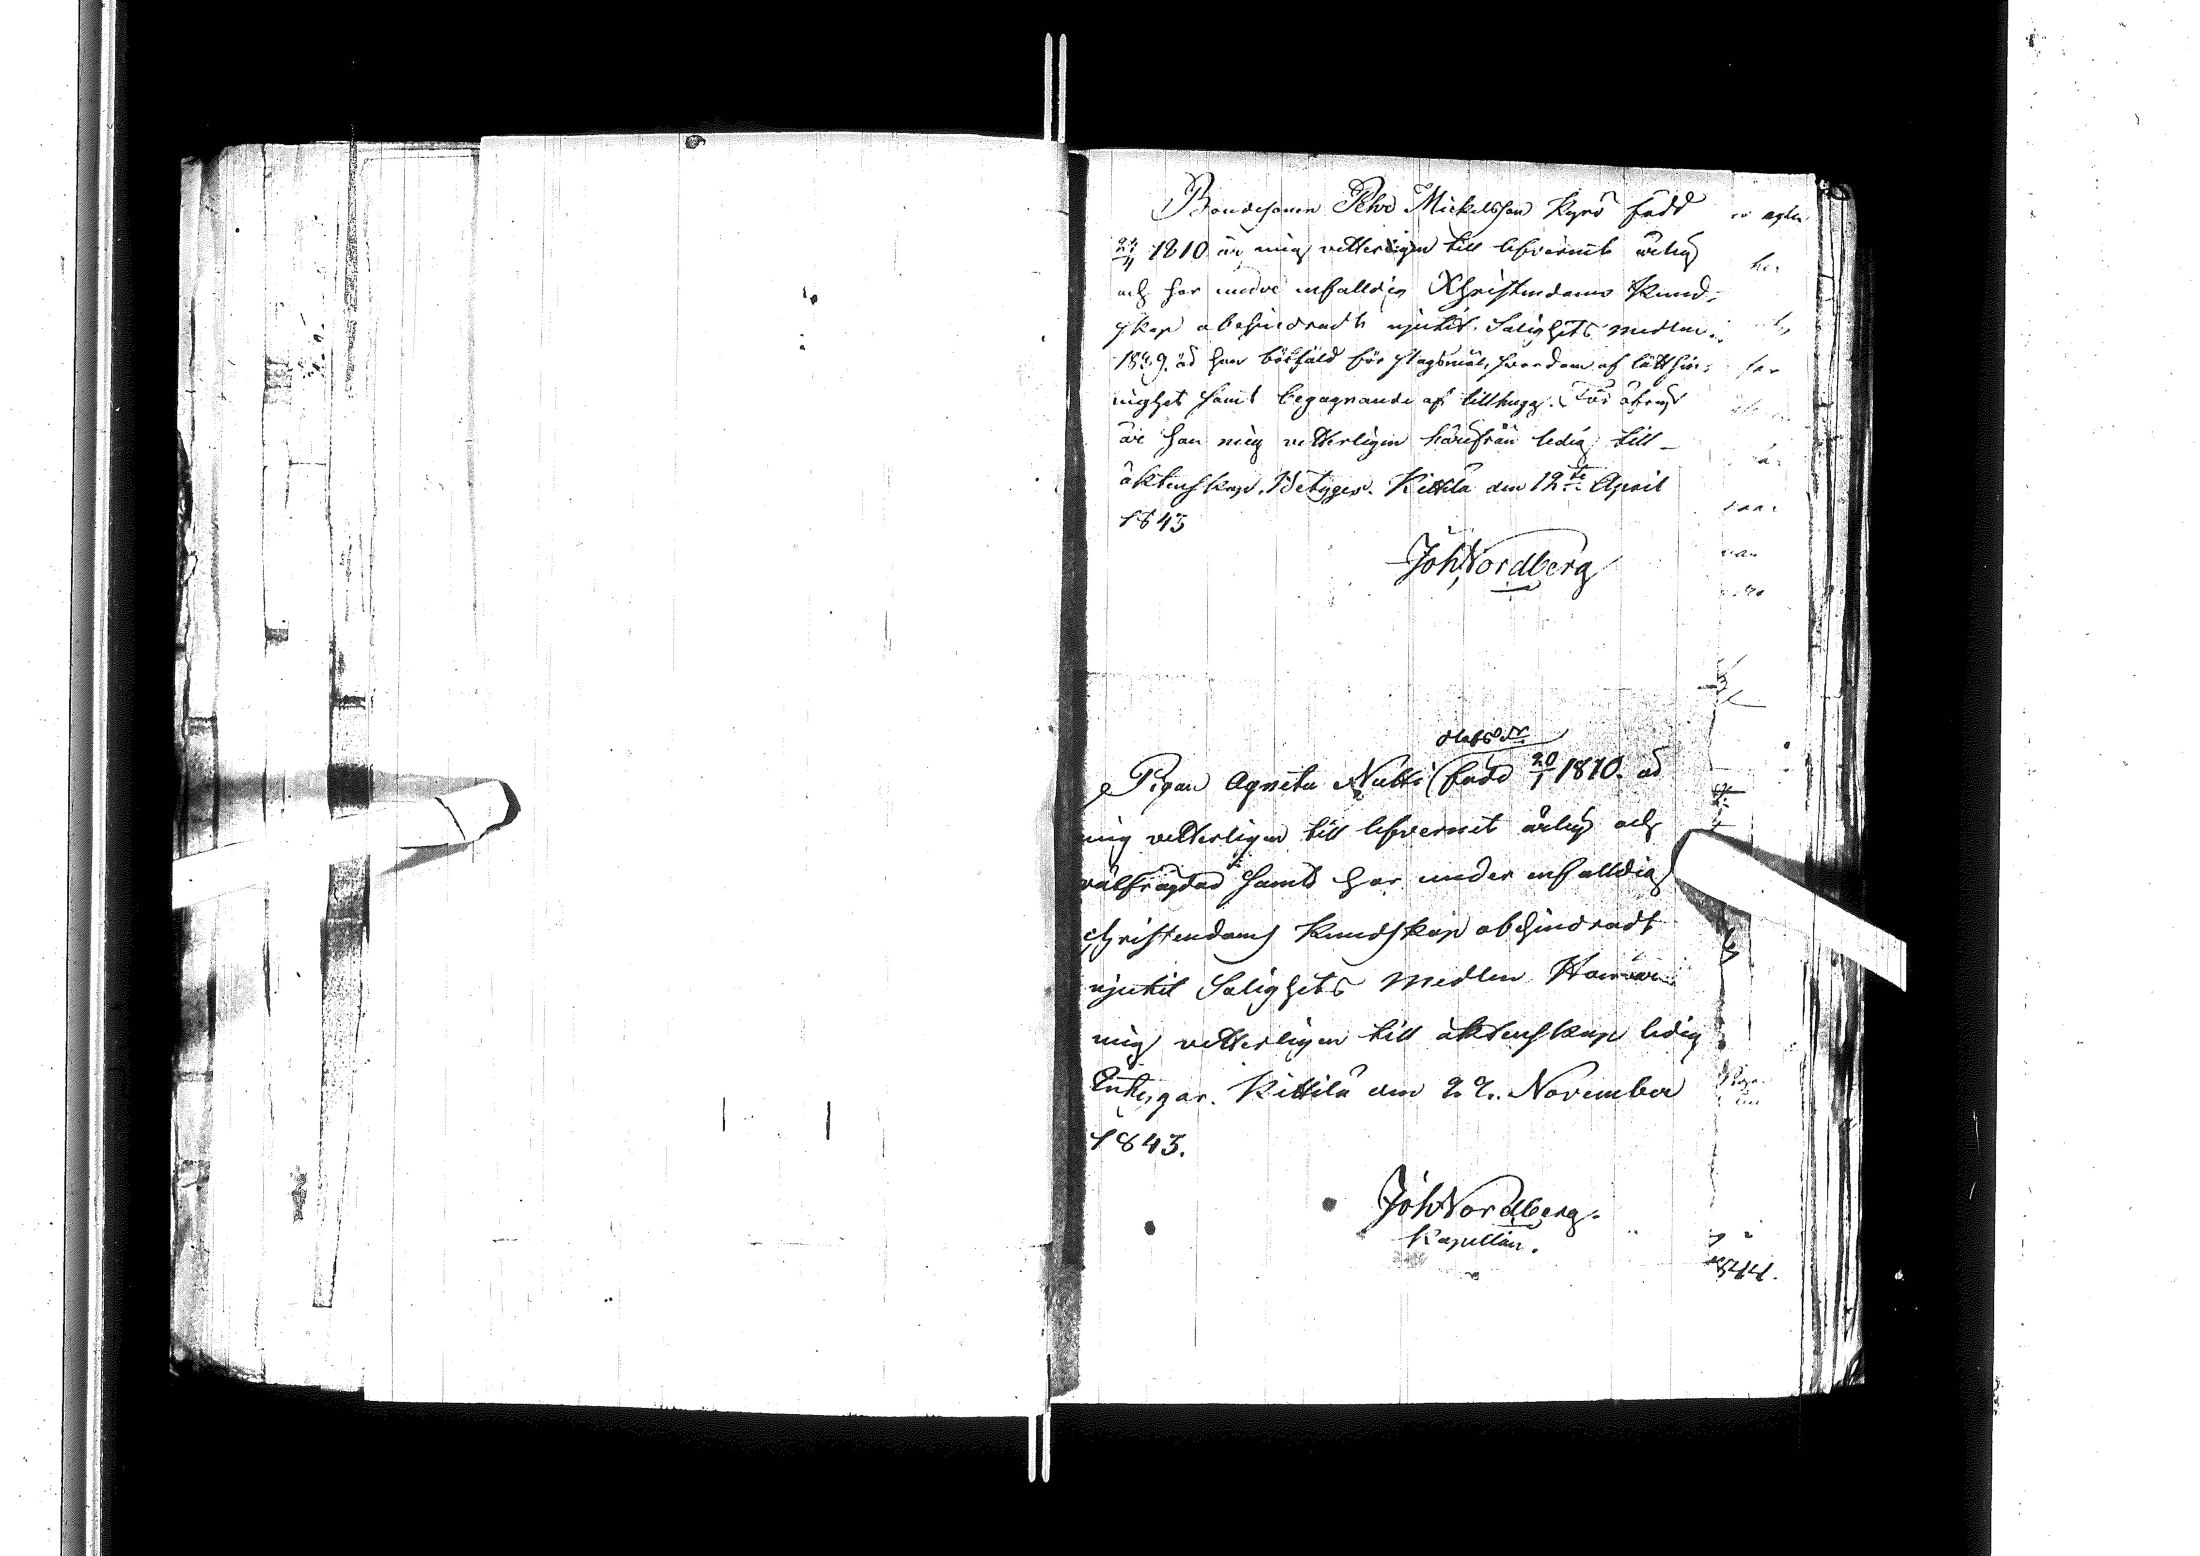 Bondesonen Pehr Mickelsson Kyrö född
24/4 1810 är mig vetterligen till lefvernet ärlig
och har under enfalldig Christendoms Kund-
skap obehindradt njutit Salighets medlen.
1839 är han bötfäld för slagsmål, hvardom af lättsin-
nighet samt begagnande af tillhugg. För öfrigt
är han mig vetterligen härifrån ledig till
äktenskap. Betygar. Kittilä den 12te April
1843
Joh Nordberg
Olofsdr
Pigan Agneta Nutti född 20/1 1810. är
mig vetterligen till lefvernet ärlig och
välfrägdad samt har under enfalldig
christendoms Kundskap obehindradt
njutit Salighets medlen
mig vetterligen till äktenskap ledig
Intygar. Kittilä den 22. November
1843.
Joh Nordberg.
Kapellan.